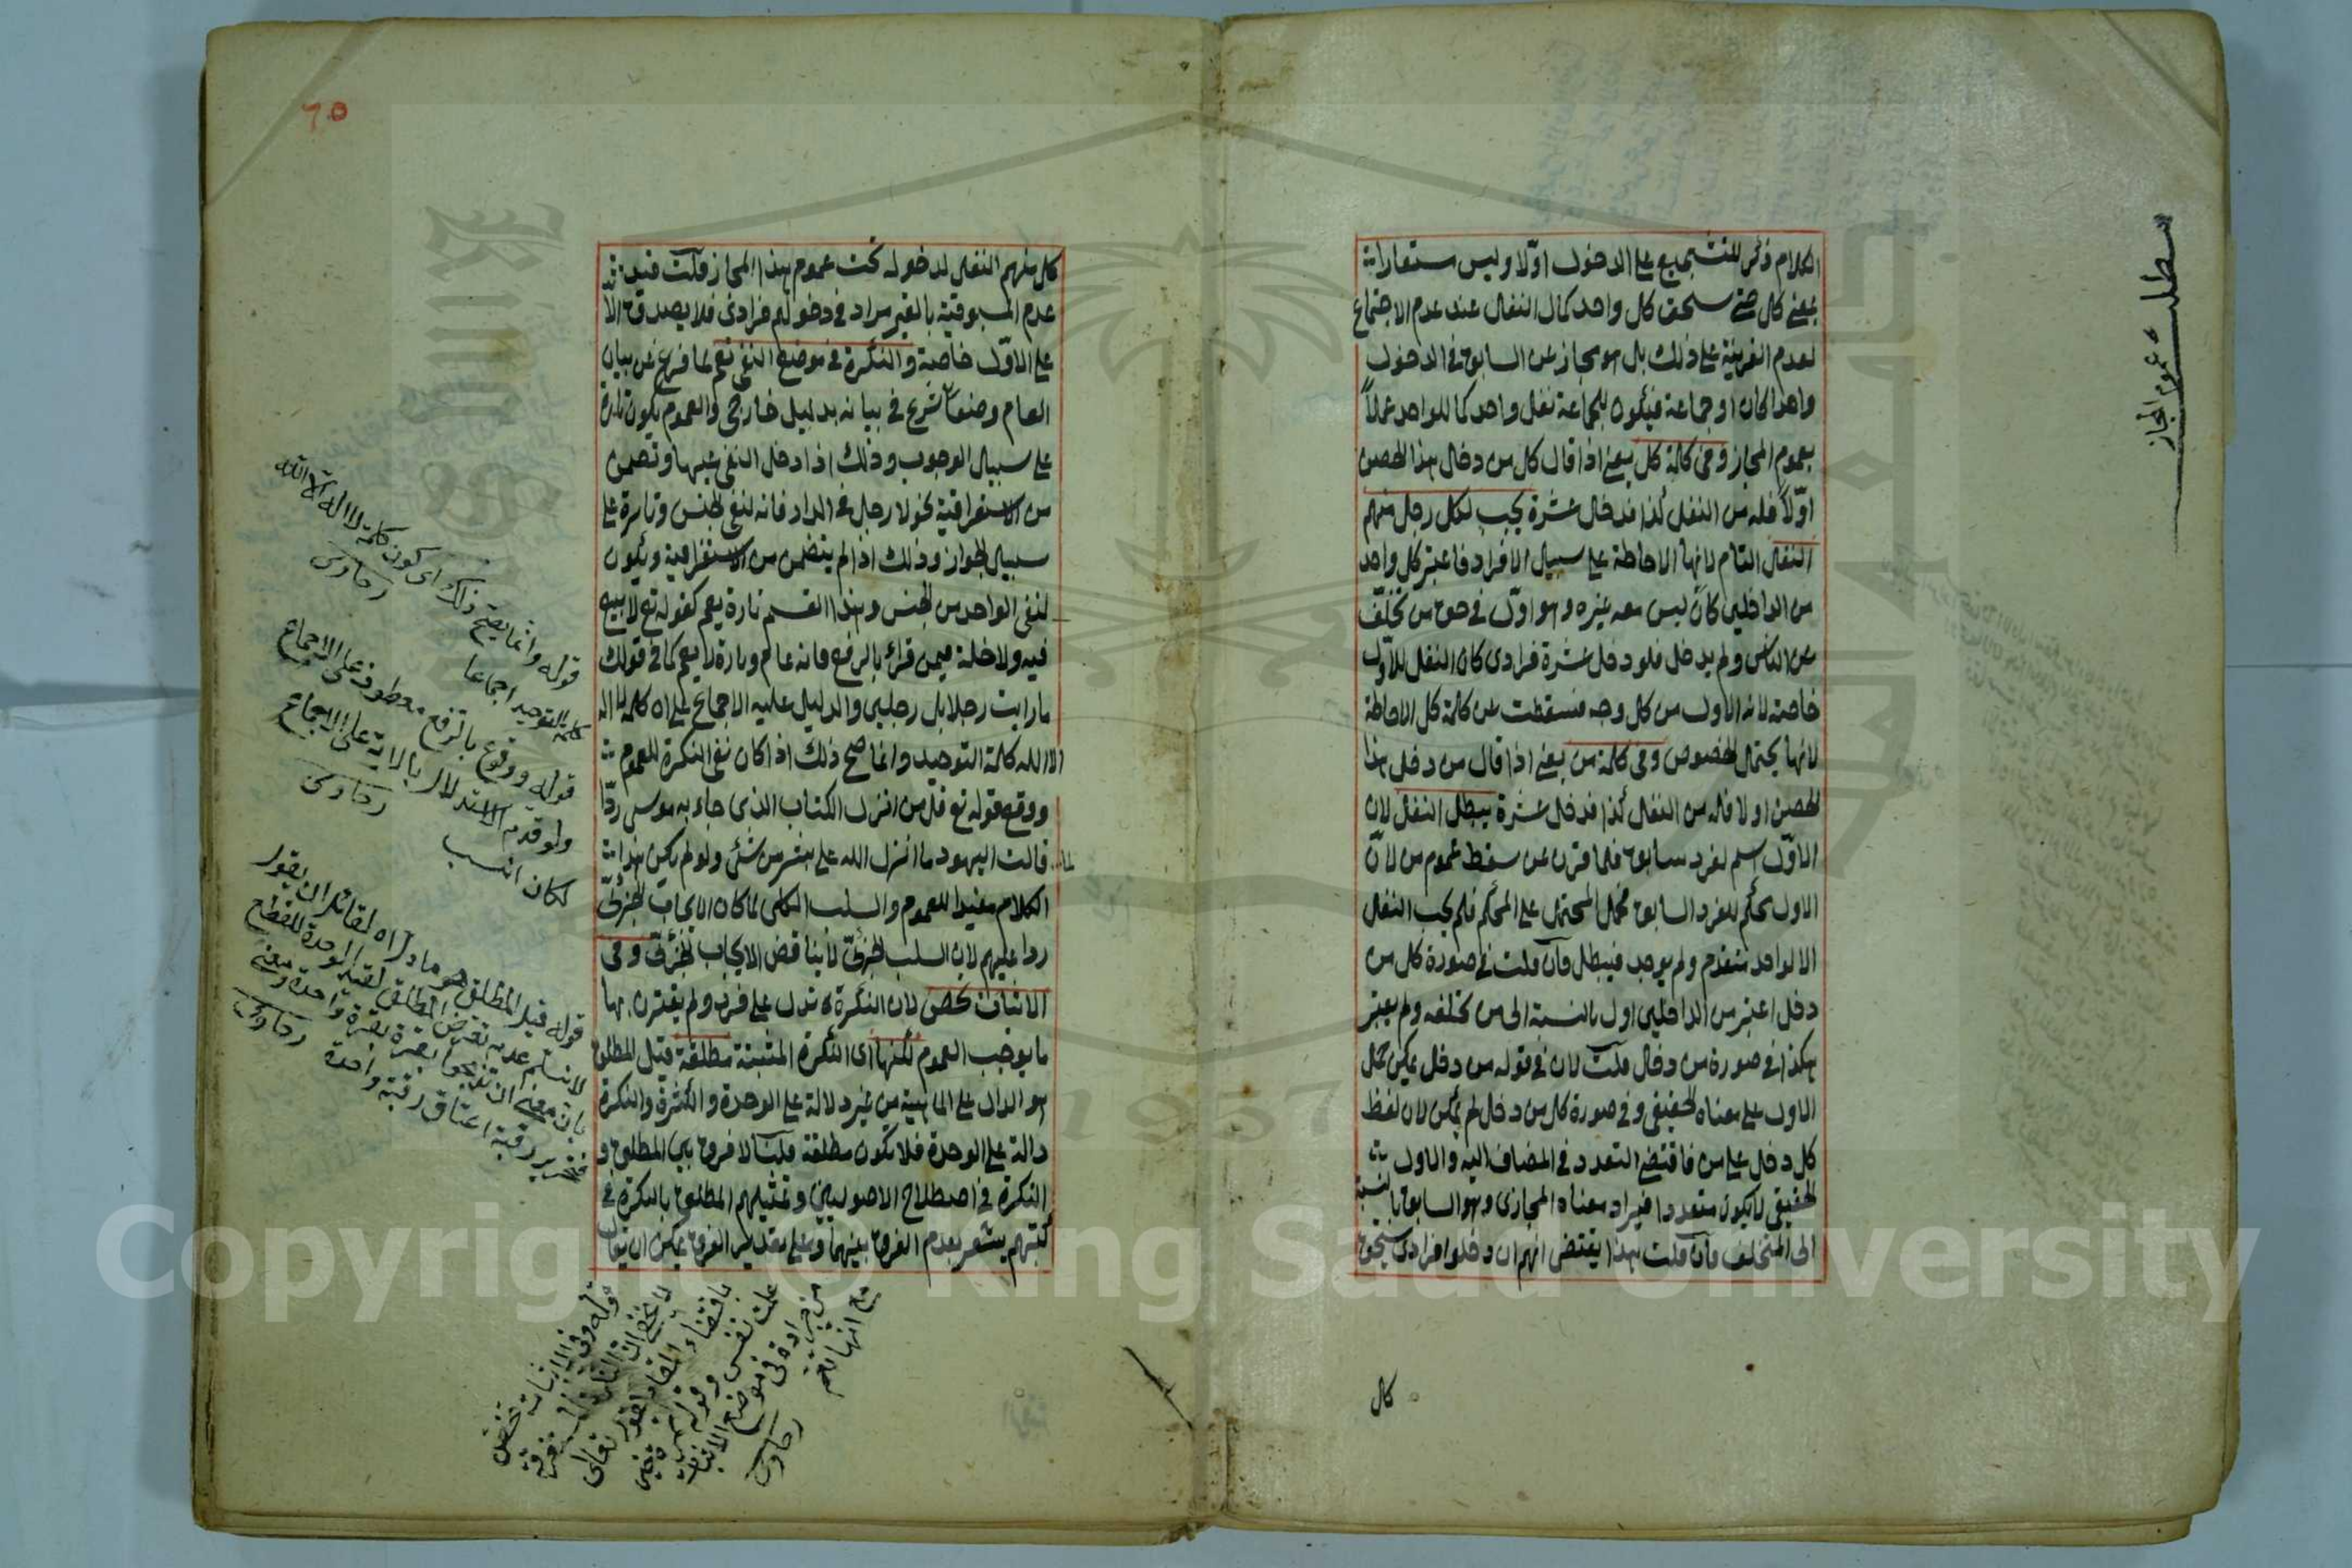 مطلب عموم المجاز
الكلام ذكر للتشجيع على الدخول اولا وليس مستعارا
بمعنى كل حتى يستحق كل واحد كمال النفل عند عدم الاجتماع
لعدم القرينة على ذلك بل هو مجاز عن السابق في الدخول
واحدا كان او جماعة فيكون للجماعة نفل واحد كما للواحد عملاً
بعموم المجاز وفى كلمة كل يعنى اذا قال كل من دخل هذا الحصن
اولاً فله من النفل كذا فدخل عشرة يجب لكل رجل منهم
النفل التام لانها الاحاطة على سبيل الافراد فاعتبر كل واحد
من الداخلين كان ليس معه غيره وهو اول في حق من تخلف
من الناس ولم يدخل فلو دخل عشرة فرادى كان النفل للاول
خاصة لانه الاول من كل وجه فسقطت عن كلمة كل الاحاطة
لانها يحتمل الخصوص وفى كلمة من يعنى اذا قال من دخل هذا
الحصن اولا فله من النفل كذا فدخل عشرة يبطل النفل لان
الاول اسم لفرد سابق فلما قرن عن سقط عموم من لان
الاول محكم للفرد السابق فحمل المحتمل على المحكم فلم يجب النفل
الا لواحد متقدم ولم يوجد فيبطل فان قلت في صورة كل من
دخل اعتبر من الداخلين اول بالنسبة الى من تخلفه ولم يعتبر
هكذا في صورة من دخل قلت لان في قوله من دخل يمكن حمل
الاول على معناه الحقيقي وفي صورة كل من دخل لم يمكن لان لفظ
كل دخل على من فاقتضى التعدد في المضاف اليه والاول
الحقيقي لا يكون متعددا فيراد معناه المجازى وهو السابق بالنسبة
الى المتخلف فان قلت هذا يقتضى انهم ان دخلوا فرادى يستحق
كل
٦٥
كل منهم النفل لدخوله تحت عموم هذا المجاز قلت فيه
عدم المسبوقية بالغير مراد في دخولهم فرادى فلا يصدق الا
على الاول خاصة والنكرة في موضع النفى تعم لما فرغ عن بيان
العام وضعا شرع في بيانه بدليل خارجى والعموم يكون تارة
على سبيل الوجوب وذلك اذا دخل النفى عليها وتضمن
من الاستغراقية نحو لا رجل في الدار فانه لنفى الجنس وتارة على
سبيل الجواز وذلك اذا لم يتضمن من الاستغراقية ويكون
لنفى الواحد من الجنس وهذا القسم تارة يعم كقوله تع لا بيع
فيه ولا خلة فيمن قرئ بالرفع فانه عام وتارة لا يعم كما في قولك
ما رايت رجلا بل رجلين والدليل عليه الاجماع على ان كلمة لا اله
الا الله كلمة التوحيد وانما صح ذلك اذا كان نفى النكرة للعموم
ووقع قوله تع قل من انزل الكتاب الذى جاء به موسى ردّا
قالت اليهود ما انزل الله على بشر من شئ ولو لم يكن هذا
الكلام مفيدا للعموم والسلب الكلى لما كان الايجاب الجزئى
ردا عليهم لان السلب الجزئى لا يناقض الايجاب الجزئى وفى
الاثبات تخص لان النكرة تدل على فرد ولم يقترن بها
ما يوجب العموم لكنها اى النكرة المثبتة مطلقة قيل المطلق
هو الدال على الماهية من غير دلالة على الوحدة والكثرة والنكرة
دالة على الوحدة فلا يكون مطلقة قلت لا فرق بين المطلق و
النكرة في اصطلاح الاصوليين وتمثيلهم المطلق بالنكرة في
كتبهم يشعر بعدم الفرق بينهما وعلى تقدير الفرق يمكن ان يقال
قوله وانما يصح ذلك اى كون كلمة لا اله الا الله
كلمة التوحيد اجماعا رهاوى
قوله ووقوع بالرفع معطوف على الاجماع
ولو قدم الاستدلال بالاية على الاجماع
لكان انسب رهاوى
قوله قيل المطلق هو ما دل اه لقائل ان يقول
لا نسلم عدم تعرض المطلق لقيد الوحدة للقطع
بان معنى ان تذبحوا بقرة بقرة واحدة ومعنى
فتحرير رقبة اعتاق رقبة واحدة رهاوى
قوله وفى الاثبات تخص
باقتضاء المقام كقوله تعالى
علمت نفس وقوله تمرة خير
من جرادة فى موضع الاثبات
مع انها تعم رهاوى